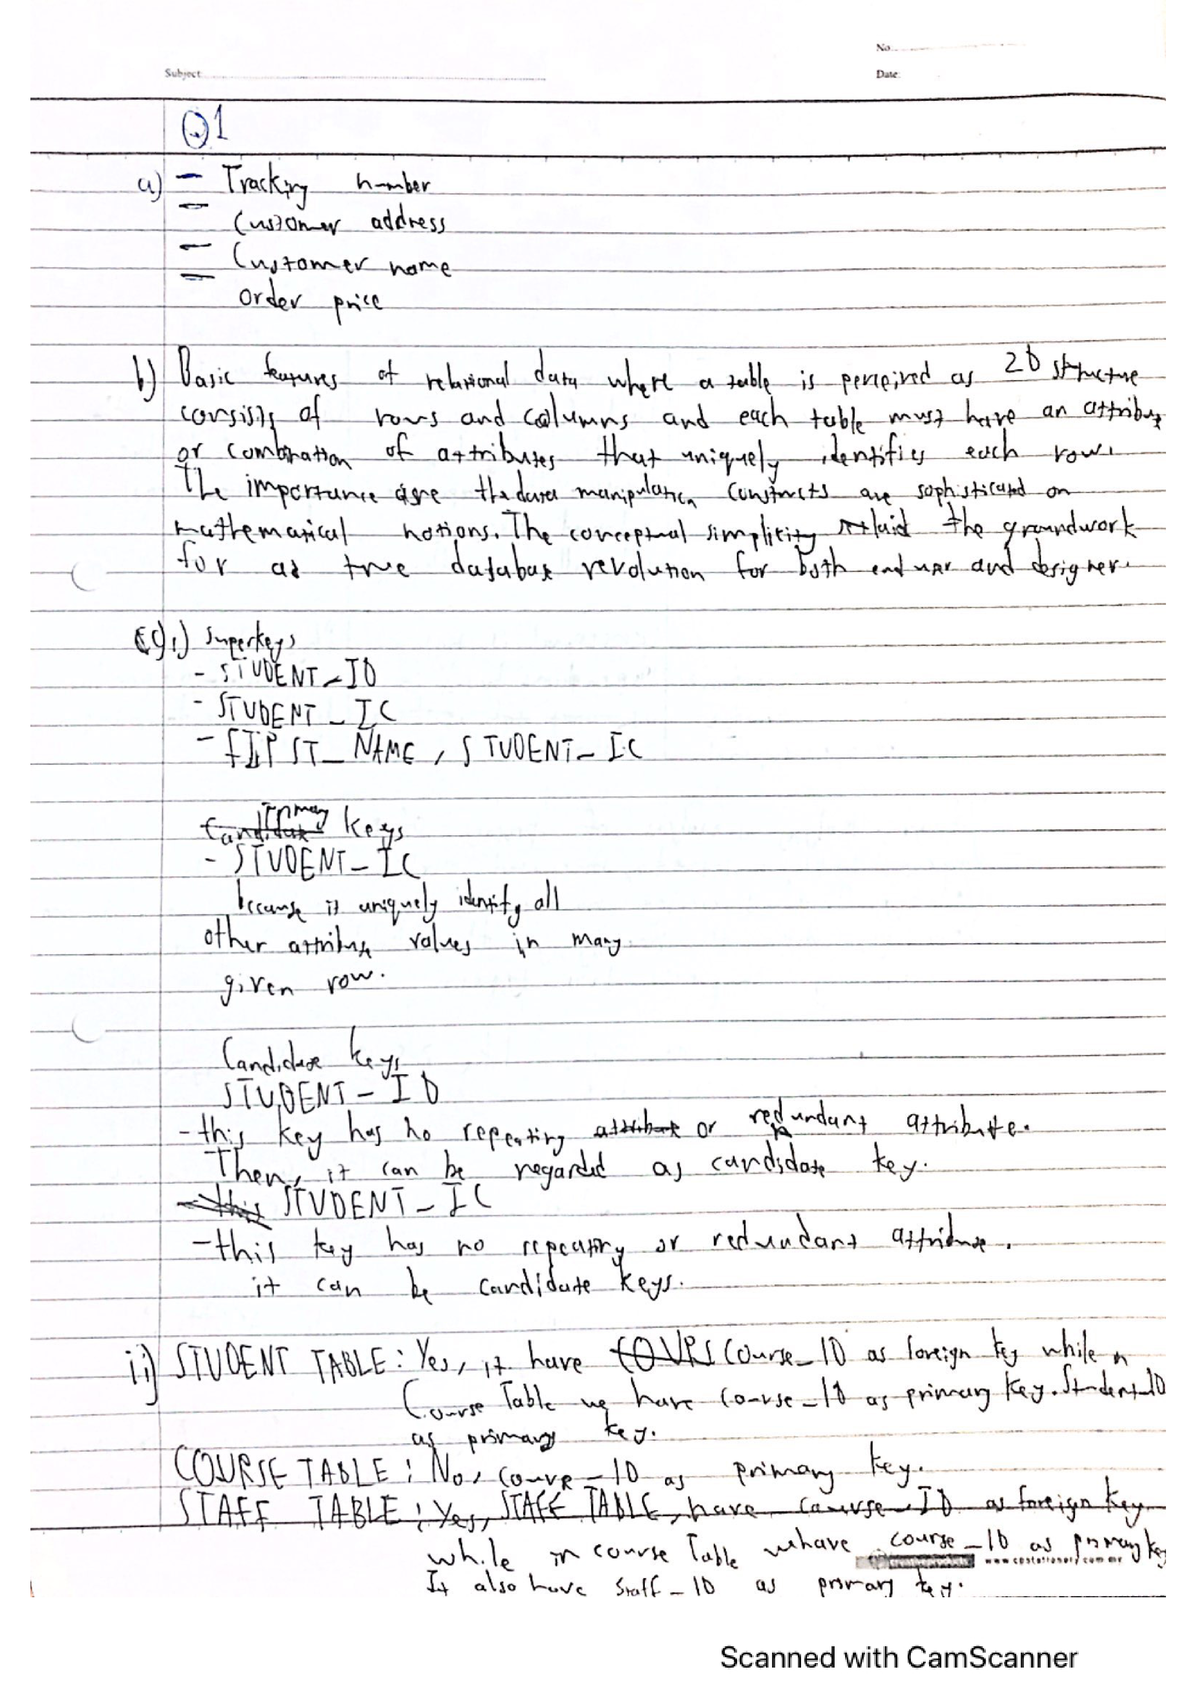 No.
Subject
Date:
Q1
a) - Tracking number
- Customer address
- Customer name
- order price
b) Basic features of relational data where a table is perceived as 2D structure
consists of rows and columns and each table must have an attribute
or combination of attributes that uniquely identifies each row.
The importance are the data manipulation constructs are sophisticated on
mathematical notions. The conceptual simplicity laid the groundwork
for as true database revolution for both end user and designer.
c) i) Superkeys
- STUDENT_ID
- STUDENT_IC
- FIRST_NAME, STUDENT_IC
Primary keys
- STUDENT_IC
because it uniquely identify all
other attribute values in many
given row.
Candidate keys
STUDENT_ID
- this key has no repeating or redundant attribute.
Then, it can be regarded as candidate key.
STUDENT_IC
- this key has no repeating or redundant attribute.
it can be candidate keys.
ii) STUDENT TABLE: Yes, it have Course_ID as foreign key while in
Course Table we have Course_ID as primary key. Student_ID
as primary key.
COURSE TABLE: No, Course_ID as primary key.
STAFF TABLE: Yes, STAFF TABLE, have course_ID as foreign key
while in course Table we have course_ID as primary key
www.cpstationery.com.my
It also have Staff_ID as primary key.
Scanned with CamScanner